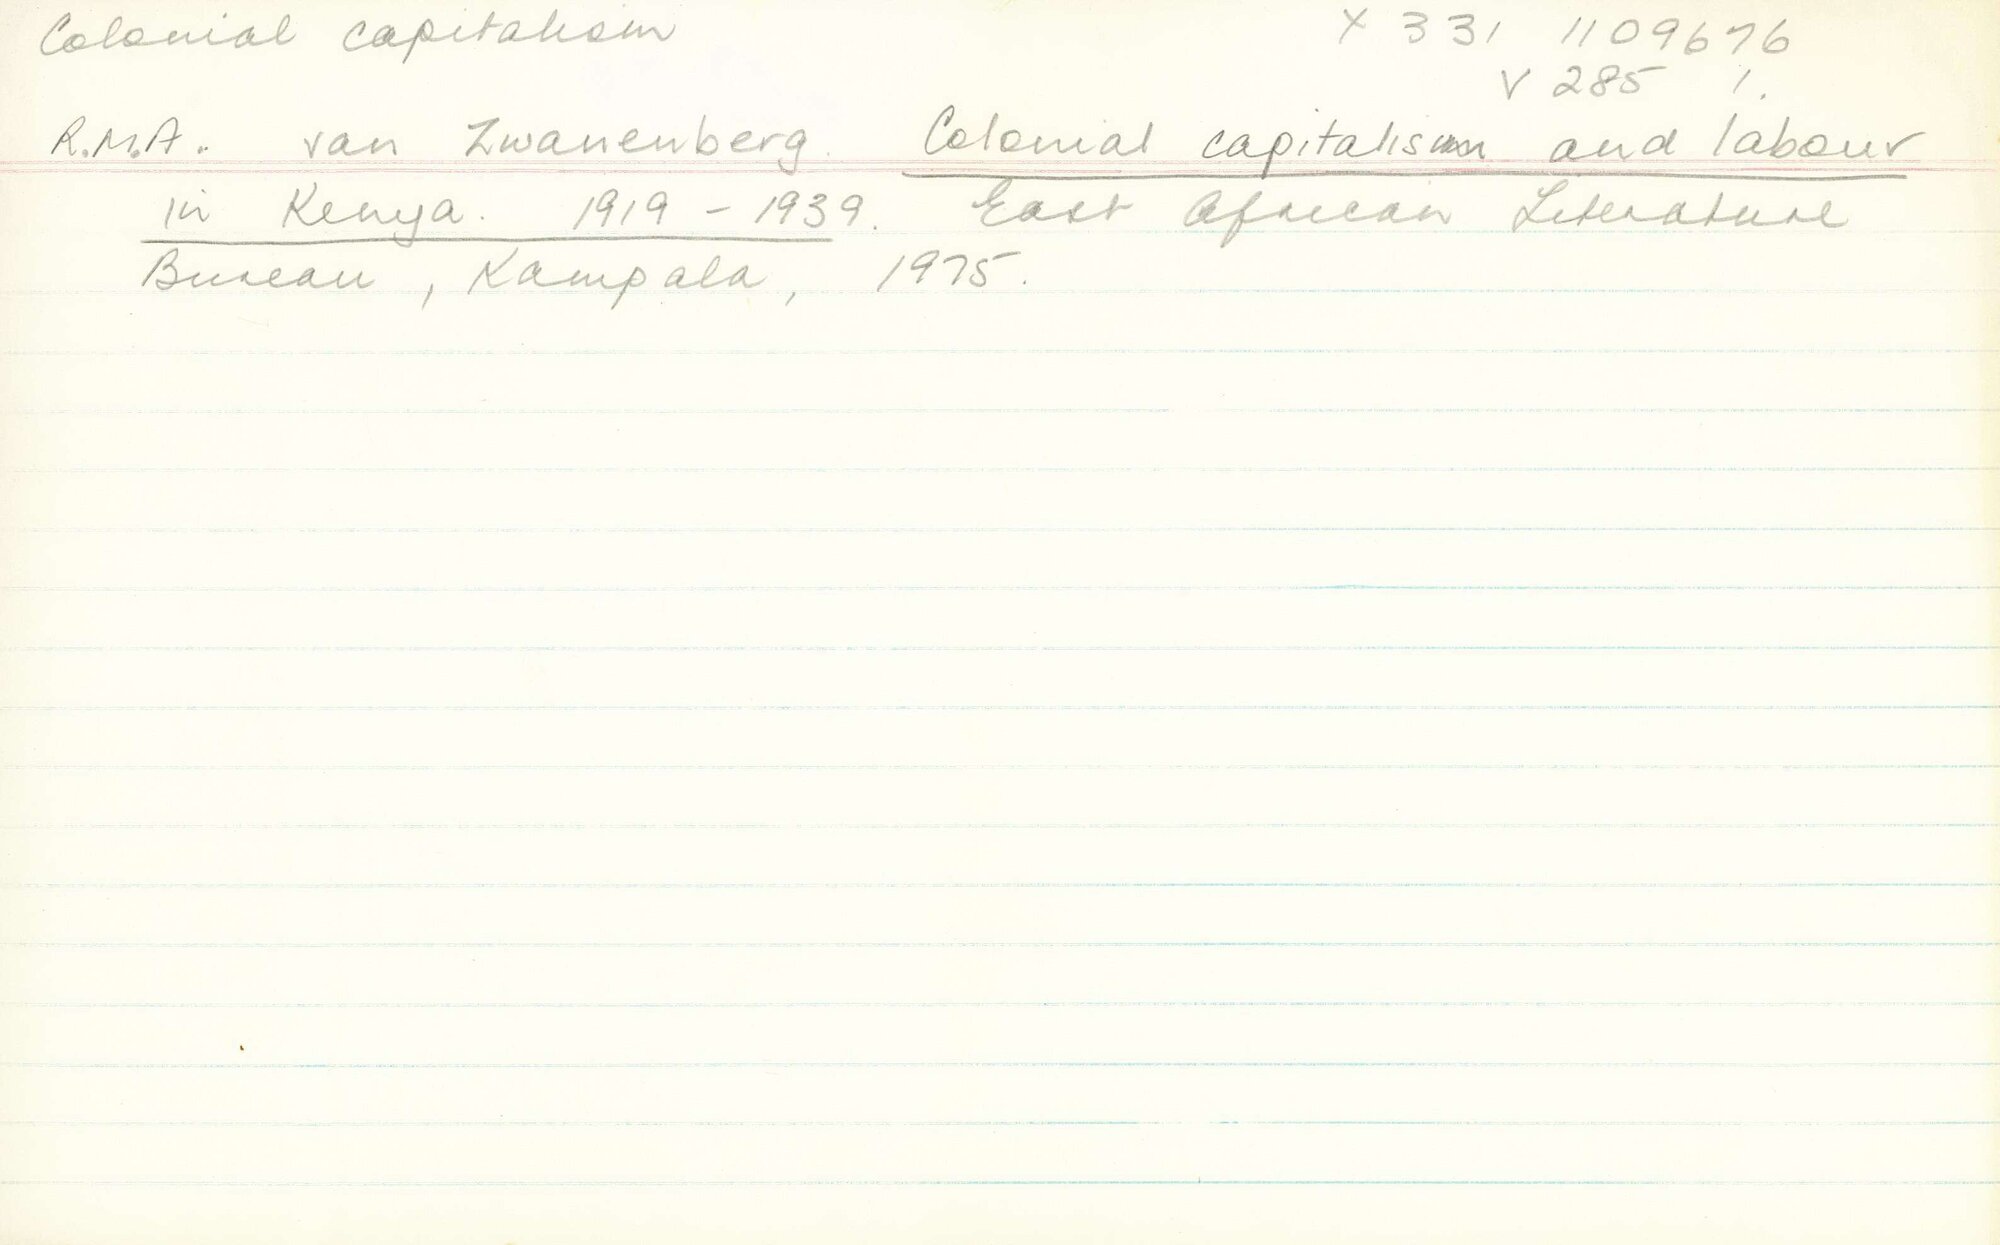 Colonial capitalism X 331 1109676
V 285 1.
R.M.A. van Zwanenberg. Colonial capitalism and labour
in Kenya. 1919 - 1939. East African Literature
Bureau, Kampala, 1975.